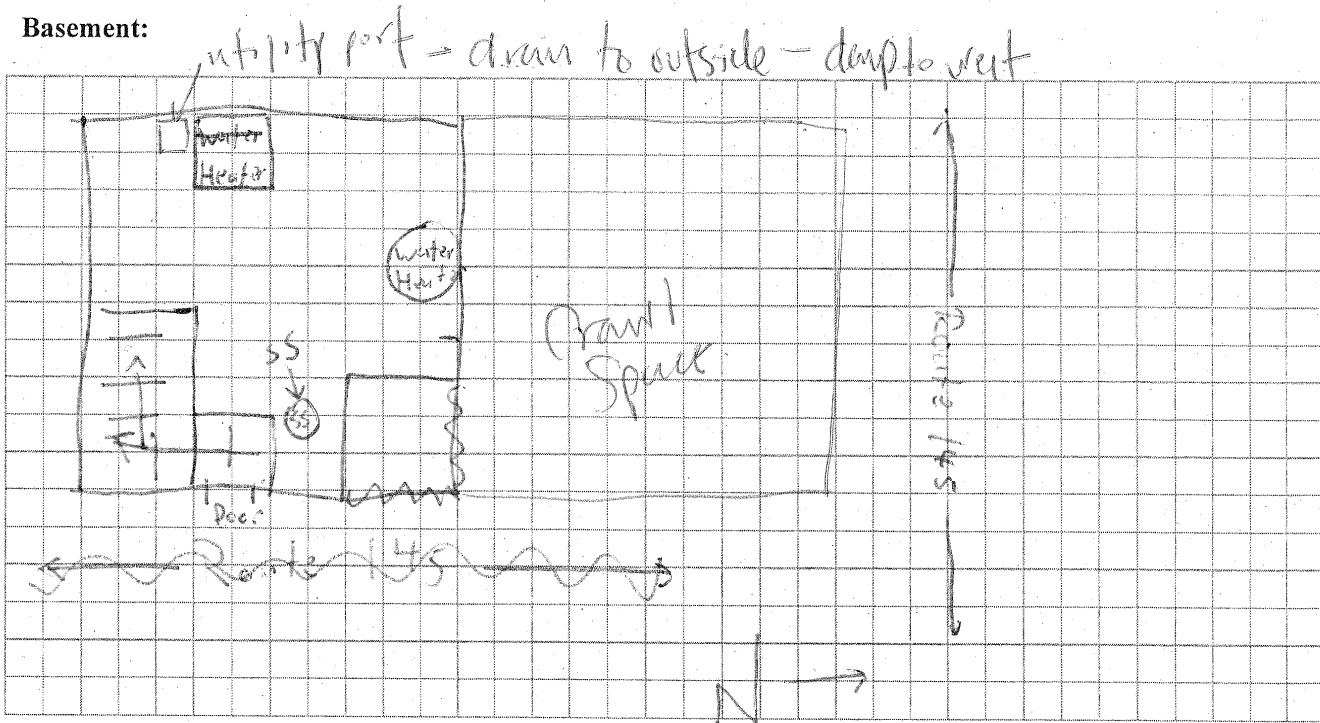 Basement:
utility port - drain to outside - damp to west
Water
Heater
Water
Heat
Crawl
Space
SS
SS
Door
Route 145
Route 145
N